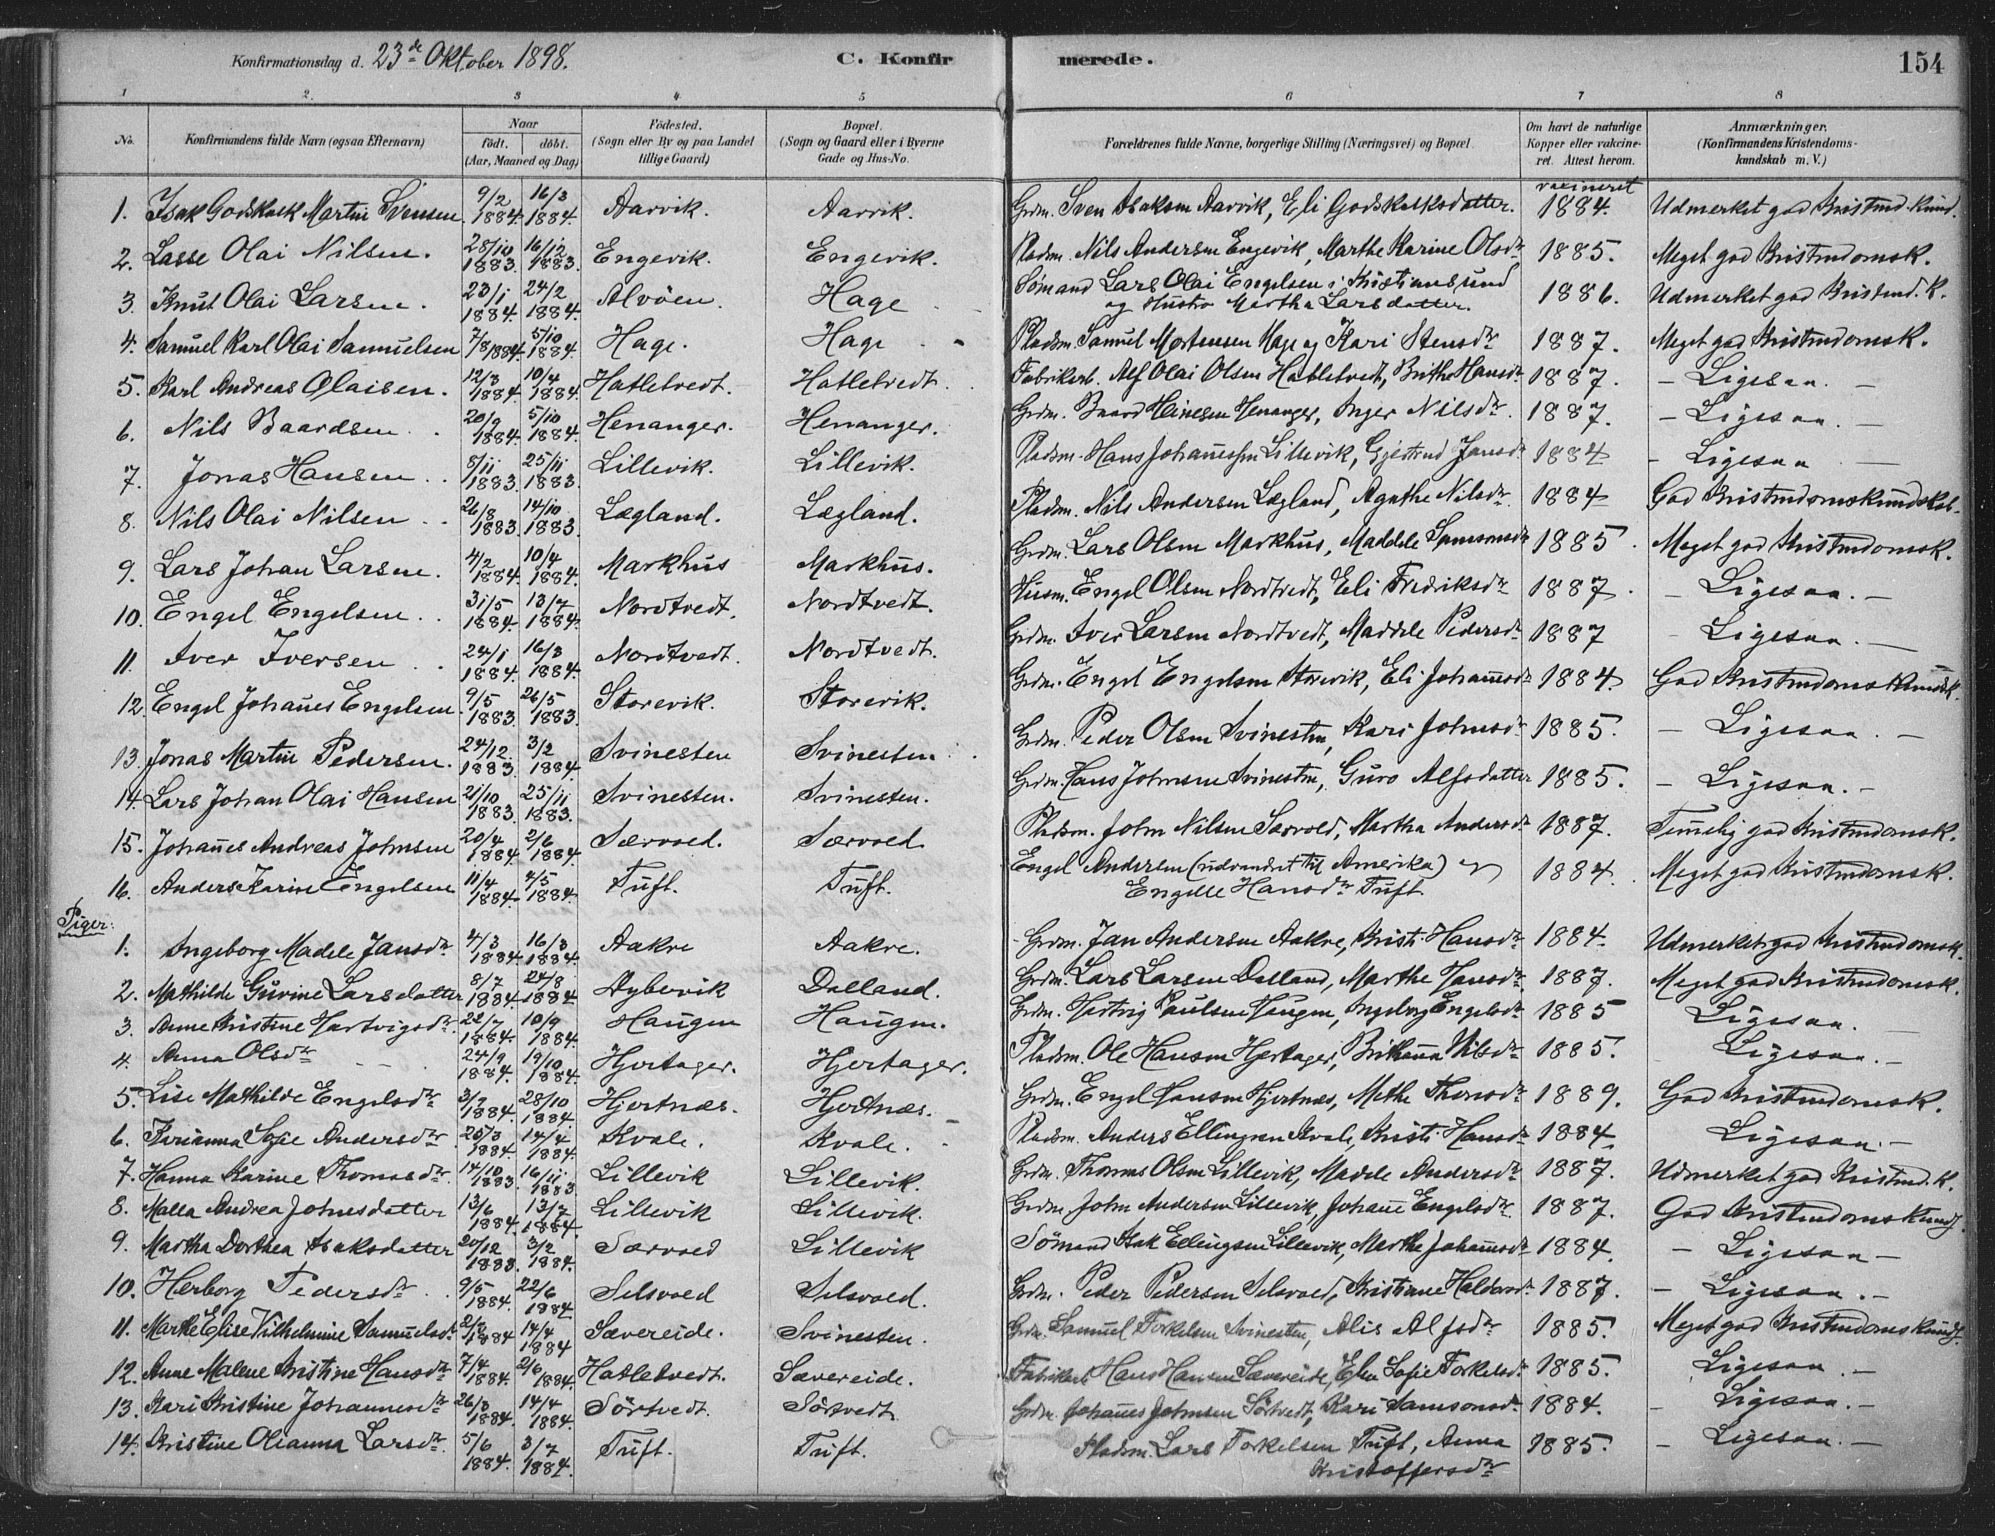 Konfirmationsdag d. 23de Oktober 1898. C. Konfirmerede. 154
1 2 3 4 5 6 7 8
No. Konfirmandens fulde Navn (ogsaa Efternavn) Naar født. døbt. (Aar, Maaned og Dag) Fødested. (Sogn eller By og paa Landet tillige Gaard) Bopæl. (Sogn og Gaard eller i Byerne Gade og Hus-No. Forældrenes fulde Navne, borgerlige Stilling (Næringsvei) og Bopæl. Om havt de naturlige Kopper eller vakcineret. Attest herom. Anmærkninger. (Konfirmandens Kristendomskundskab m. V.)
1. Isak Godskalk Martin Svensen 9/2 1884. 16/3 1884. Aarvik. Aarvik. Grdm. Sven Isaksen Aarvik, Eli Godskalksdatter. vaxineret 1884. Udmerket god Kristend. kund.
2. Lasse Olai Nilsen. 28/10 1883. 16/12 1883. Engevik. Engevik. Pladsm. Nils Andersen Engevik, Marthe Karine Olsdr 1885. Meget god Kristendomsk.
3. Knut Olai Larsen. 23/1 1884. 24/2 1884. Alvöen. Hage Sømand Lars Olai Engelsen i Kristiansund
og Hustr Martha Larsdatter. 1886. Udmerket god Kristend. K.
4. Samuel Karl Olai Samuelsen 7/8 1884. 5/10 1884. Hage. Hage Pladsm. Samuel Mortensen Hage og Kari Stensdr 1887. Meget god Kristendomsk.
5. Karl Andreas Olaisen. 12/3 1884. 10/4 1884. Hatletvedt. Hatletvedt. Fabrikarb. Alf Olai Olsen Hatletvedt, Britha Hansdr 1887. – Ligesaa. –
6. Nils Baardsen 20/9 1884. 5/10 1884. Henanger. Henanger. Grdm. Baard Heinesen Henanger, Inger Nilsdr. 1887. – Ligesaa. –
7. Jonas Hansen 8/11 1883. 25/11 1883. Lillevik. Lillevik. Pladsm. Hans Johannessen Lillevik, Gjertrud Jansdr 1884 – Ligesaa –
8. Nils Olai Nilsen 26/8 1883. 14/10 1883. Lægland. Lægland. Pladsm. Nils Andersen Lægland, Agathe Nilsdr. 1884 God Kristendomskundskab.
9. Lars Johan Larsen. 4/2 1884. 10/4 1884. Markhus Markhus. Grdm. Lars Olsen Markhus, Maddele Samsonsdr 1885. Meget god Kristendomsk.
10. Engel Engelsen 31/5 1884. 13/7 1884. Nordtvedt. Nordtvedt. Husm. Engel Olsen Nordtvedt, Eli Fredriksdr 1887. – Ligesaa. –
11. Iver Iversen 24/1 1884. 16/3 1884. Nordtvedt. Nordtvedt. Grdm. Iver Larsen Nordtvedt, Maddele Pedersdr 1887 – Ligesaa. –
12. Engel Johanes Engelsen 9/5 1883. 26/5 1883. Storevik. Storevik. Grdm. Engel Engelsen Storevik, Eli Johannesdr 1884 God Kristendomskundsk.
13. Jonas Martin Pedersen. 24/12 1883. 3/2 1884. Svinesten Svinesten Grdm. Peder Olsen Svinesten, Kari Johnsdr 1885. – Ligesaa. –
14. Lars Johan Olai Hansen 21/10 1883. 25/11 1883. Svinesten. Svinesten. Grdm. Hans Johnsen Svinesten, Guro Alfsdatter 1885. – Ligesaa. –
15. Johanes Andreas Johnsen 20/4 1884. 2/6 1884. Særvold. Særvold Pladsm. John Nilsen Særvold, Martha Andersdr 1887. Temelig god Kristendomsk.
16. Anders Karine Engelsen 11/4 1884. 4/5 1884. Tuft. Tuft. Engel Andersen (udvandret til Amerika) og
Engelle Hansdr Tuft 1884. Meget god Kristendomsk.
Piger:
1. Ingeborg Madele Jansdr 4/3 1884. 16/3 1884. Aakre Aakre. Grdm. Jan Andersen Aakre, Kristi Hansdr 1884. Udmerket god Kristendomsk.
2. Mathilde Gurine Larsdatter 8/7 1884. 24/8 1884. Dalland. Grdm. Lars Larsen Dalland, Marthe Hansdr 1887. Meget god Kristendomsk.
3. Anne Kristine Hartvigsdr. 22/7 1884. 10/9 1884. Haugen Haugen. Grdm. Hartvig Paulsen Haugen, Ingeborg Engelsdr 1885 Ligesaa. –
4. Anna Olsdr 24/9 1884. 19/10 1884. Hjertager. Hjertager. Pladsm. Ole Hansen Hjertager, Brithanna Nilsdr 1885. Ligesaa. –
5. Lise Mathilde Engelsdr 3/7 1884. 28/10 1884. Hjertnæs. Hjertnæs. Grdm. Engel Hansen Hjertnæs, Methe Thorsdr 1889. God Kristendomsk.
6. Karianna Sofie Andersdr 25/3 1884. 14/4 1884. Kvale. Kvale. Pladsm. Anders Ellingsen Kvale, Kristi Hansdr 1884. Ligesaa. –
7. Hanna Karine Thomasdr. 14/10 1883. 16/11 1883 Lillevik Lillevik. Grdm. Thomas Olsen Lillevik, Madele Andersdr 1887. Udmerket god Kristend. K.
8. Malla Andrea Johnsdatter 13/6 1884. 13/7 1884. Lillevik Lillevik. Grdm. John Andersen Lillevik, Johane Engelsdr 1887. God Kristendomskund.
9. Martha Dorthea Isaksdatter 20/12 1883. 3/2 1884. Særvold Lillevik Sömand Isak Ellingsen Lillevik, Marthe Johannesdr 1884. – Ligesaa –
10. Herborg Pedersdr. 9/5 1884. 22/6 1884 Selsvold Selsvold. Grdm. Peder Pedersen Selsvold, Kristiane Haldorsdr 1887. – Ligesaa. –
11. Marthe Elise Vilhelmine Samuelsdr 2/3 1884 14/4 1884 Sævereide. Svinesten. Grdm. Samuel Torkelsen Svinesten, Alis Alfsdr 1885. Meget god Kristendomskund.
12. Anne Malene Kristine Hansdr 7/4 1884. 2/6 1884. Hatletvedt. Sævereide. Fabrikarb. Hans Hansen Sævereide, Elen Sofie Torkelsdr 1885. Ligesaa. –
13. Kari Kristine Johannesdr 26/3 1884. 14/4 1884. Sörtvedt. Sörtvedt Grdm. Johanes Johnsen Sörtvedt, Kari Samsonsdr. 1884. – Ligesaa. –
14. Kristine Olianna Larsdr. 5/6 1884. 3/7 1884 Tuft. Tuft. Pladsm. Lars Torkelsen Tuft, Anna
Kristoffersdr 1885. – Ligesaa. –